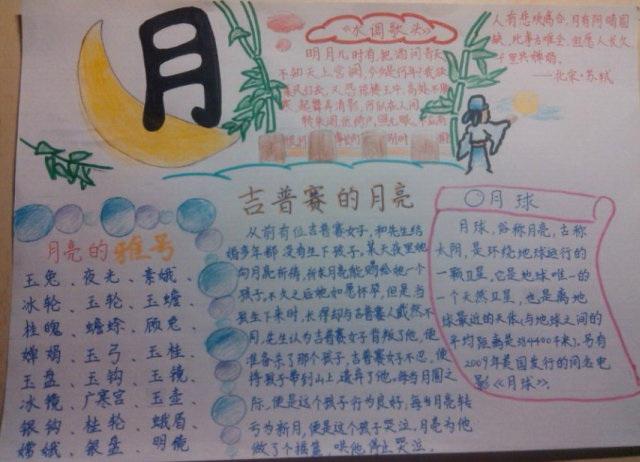 月
《水调歌头》
明月几时有,把酒问青天
不知天上宫阙,今夕是何年?我欲
乘风归去,又恐琼楼玉宇,高处不胜
寒,起舞弄清影,何似在人间
转朱阁,低绮户,照无眠,不应有
人有悲欢离合,月有阴晴圆
缺,此事古难全,但愿人长久
千里共婵娟。
——北宋·苏轼
月亮的雅号
玉兔、夜光、素娥、
冰轮、玉轮、玉蟾、
桂魄、蟾蜍、顾兔、
婵娟、玉弓、玉桂、
玉盘、玉钩、玉镜、
冰镜、广寒宫、玉壶、
银钩、桂轮、蛾眉、
嫦娥、银盘、明镜
吉普赛的月亮
从前有位吉普赛女子,和先生结
婚多年都没有生下孩子。某天夜里她
向月亮祈祷,祈求月亮能赐给她一个
孩子,不久之后她如愿怀孕,但是当
孩生下来时,长得却与吉普赛人截然不
同,先生认为吉普赛女子背叛了他,便
准备杀了那个孩子,吉普赛女子不忍,便
将孩子带到山上遗弃了他。每当月圆之
际,便是这个孩子行为良好,每当月亮转
亏为新月,便是这个孩子哭泣,月亮为他
做了个摇篮,哄他停止哭泣。
○月球
月球,俗称月亮,古称
太阴,是环绕地球运行的
一颗卫星,它是地球唯一的
一个天然卫星,也是离地
球最近的天体(与地球之间的
平均距离是384400千米)。另有
2009年美国发行的同名电
影《月球》。